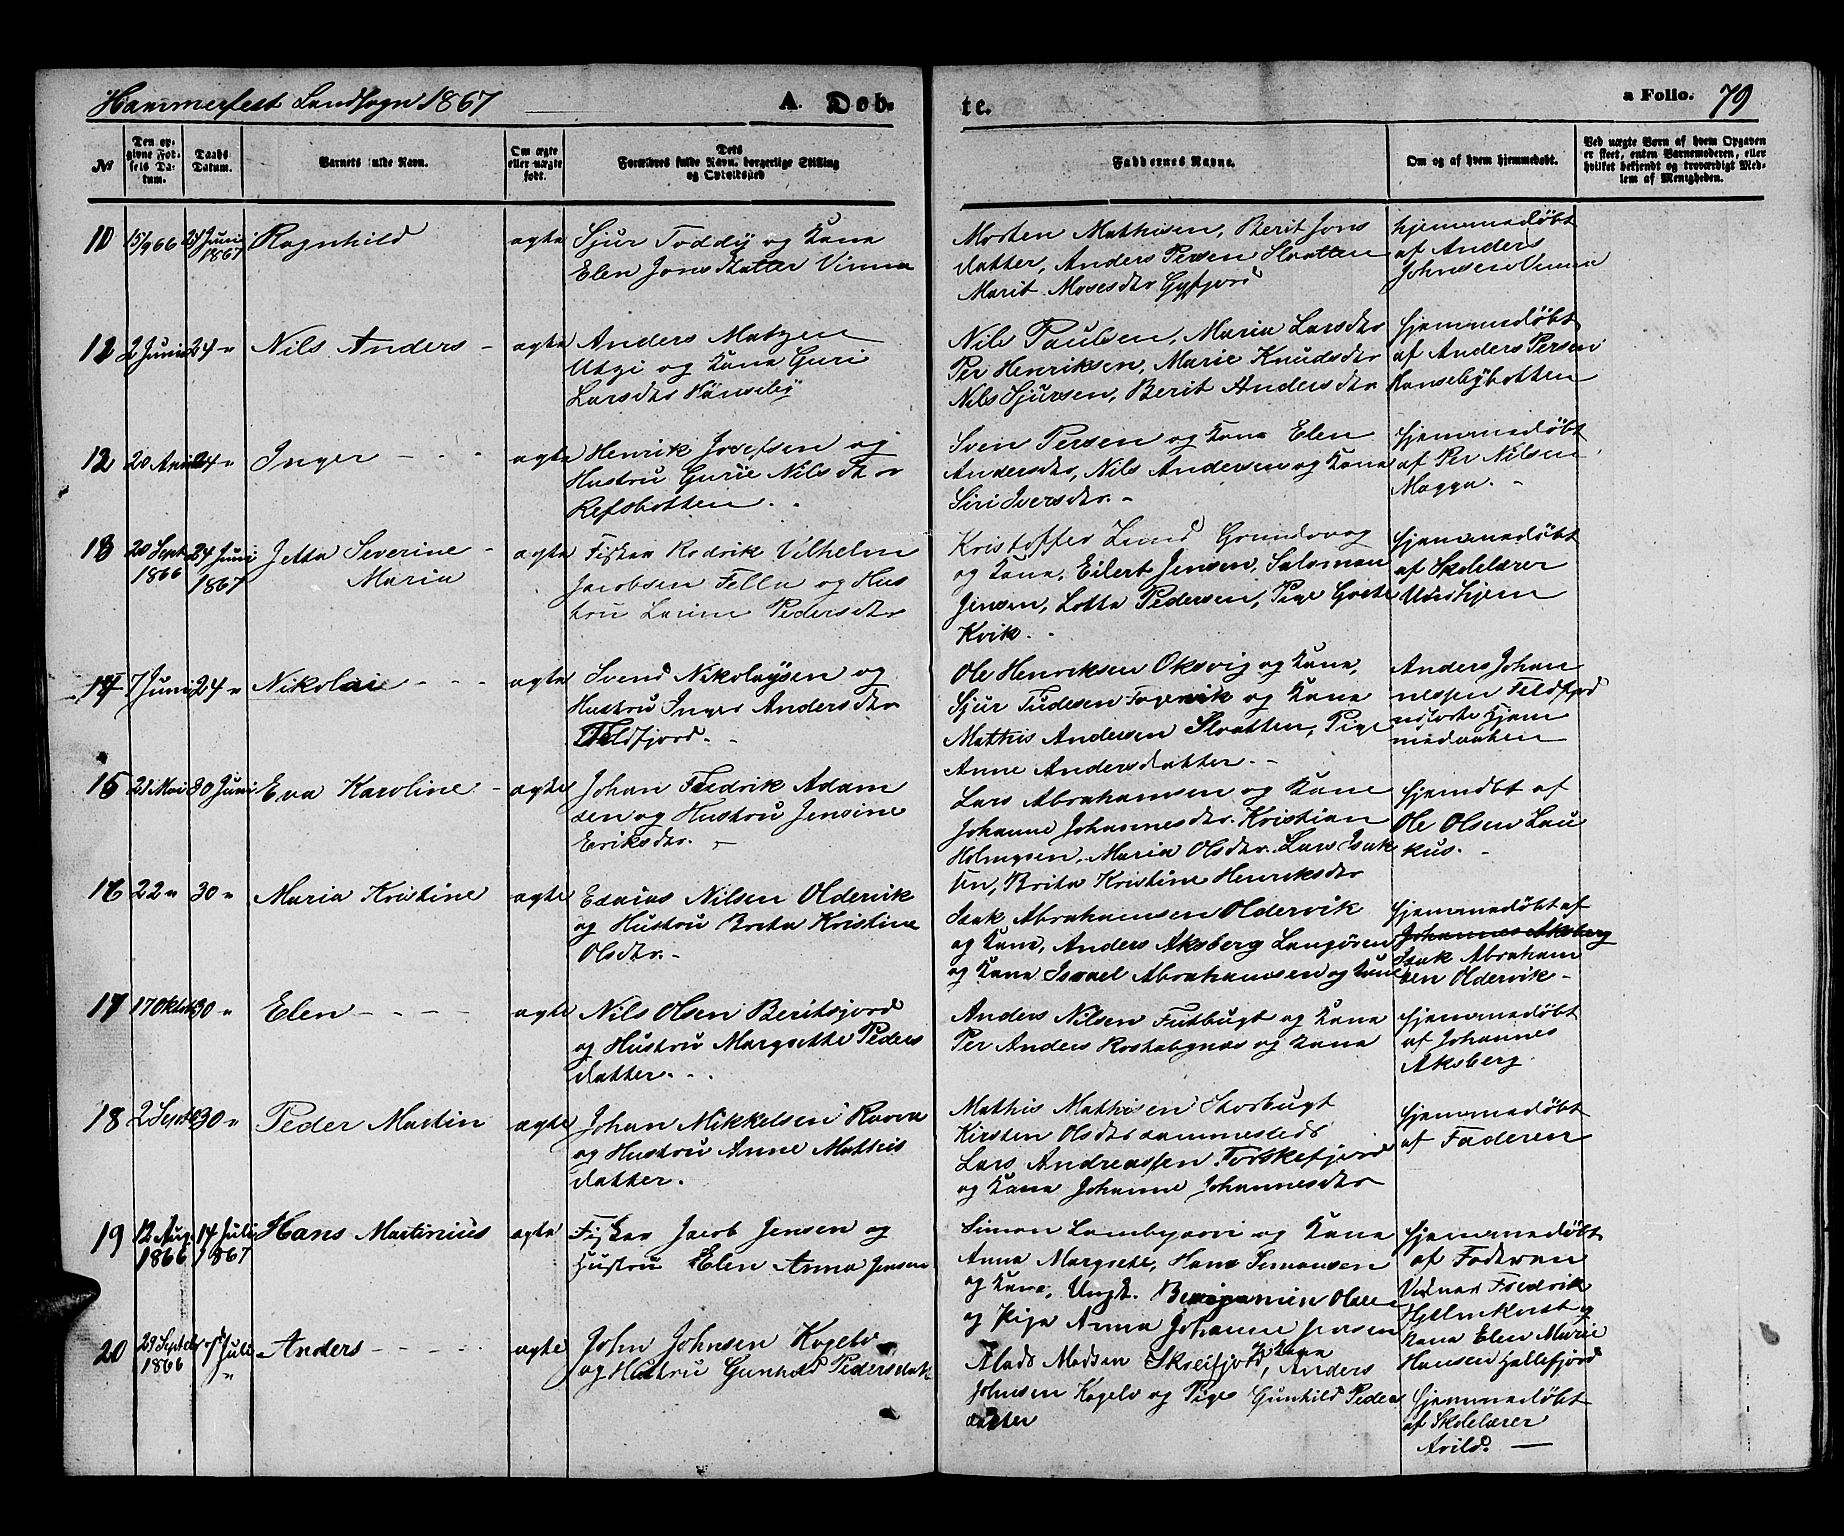 Hammerfest Landsogn 1867 A. Døb-
te. a Folio. 79
No
Den op-
givne Fød-
sels Da-
tum.
Daabs
Datum.
Barnets fulde Navn.
Om ægte
eller uægte
født.
Dets
Forældres fulde Navn, borgerlige Stilling
og Opholdssted
Faddernes Navne.
Om og af hvem hjemmedøbt.
Ved uægte Børn af hvem Opgaven
er skeet, enten Barnemoderen, eller
hvilket bekjendt og troværdigt Med-
lem af Menigheden.
10
15/9 66
24 Juni
1867
Ragnhild
ægte
Sjur Toddy og Kone
Elen Jonsdatter Vinna
Morten Mathisen, Berit Jons
datter, Anders Persen Slaatten
Marit Mosesdtr
hjemmedøbt
af Anders
Johnsen Vinna
11
2 Juni
24 "
Nils Anders -
ægte
Anders Matzen
Utzi og Kone Guri
Larsdtr
Nils Paulsen, Maria Larsdtr
Per Henriksen, Marie Knudsdtr
Nils Sjursen, Berit Andersdtr
hjemmedøbt
af Anders Persen
12
20 April
24 "
Inger - - -
ægte
Henrik Josefsen og
Hustru Gurie Nilsdtr
Refsbotten.
Sven Persen og Kone Elen
Andersdtr, Nils Andersen og Kone
Siri Iversdtr. -
hjemmedøbt
af Per Nilsen
Magga. -
13
20 Sept
1866
24 Juni
1867
Jetta Severine -
Maria
ægte
Fisker Redrik Vilhelm
Jacobsen Fella og Hus
tru Pedersdtr
Kristoffer Lund
og Kone, Eilert Jensen, Salomon
Jensen, Lotta Pedersen, Pige
Kvik. -
hjemmedøbt
af Skolelærer
14
7 Juni
24 "
Nikolai - - -
ægte
Svend Nikolaysen og
Hustru Inger Andersdtr
Feldfjord. -
Ole Henriksen Oksvig og Kone,
Sjur og Kone
Mathis Andersen Slaatten, Pige
Anne Andersdatter. -
Anders Johan
nessen Feldfjord
15
21 Mai
30 Juni
Eva Karoline -
ægte
Johan Fredrik Adam
sen og Hustru Jensine
Eriksdtr. -
Lars Abrahamsen og Kone
Johanne Johannesdtr. Kristian
Maria Olsdtr. Lars Isak
sen, Brita Kristine Henriksdtr
hjemdbt af
Ole Olsen Lau
kus. -
16
22 "
30 "
Maria Kristine
ægte
Esaias Nilsen Oldervik
og Hustru Brita Kristine
Olsdtr. -
Isak Abrahamsen Oldervik
og Kone, Anders Aksberg Langøren
og Kone Ismael Abrahamsen og Kone
hjemmedøbt af
Johannes Aksberg
Isak Abraham
sen Oldervik -
17
17 Oktbr
30 "
Elen - - - -
ægte
Nils Olsen Beritsjord
og Hustru Margrethe Peders
datter. - .
Anders Nilsen Futbugt og Kone
Per Anders og Kone
hjemmedøbt
af Johannes
Aksberg
18
2 Septbr
30 "
Peder Martin
ægte
Johan Mikkelsen Ravna
og Hustru Anne Mathis
datter.
Mathis Mathisen Storbugt
Kirsten Olsdtr sammesteds
Lars Andreassen Torskefjord
og Kone Johanne Johannesdtr
hjemmedøbt
af Faderen
19
12 Aug
1866
14 Juli
1867
Hans Martinius
ægte
Fisker Jacob Jensen og
Hustru Elen Anna Jensen
Simon og Kone
Anna Margrete, Hans Simonsen
og Kone, Ungk. Benjamin Olsen
og Pige Anna Johanne Jensen
hjemmedøbt
af Faderen
Vidner Fredrik
og
Kone Elen Marie
Hansen Hallefjord
20
29 Septbr
1866
Juli
"
Anders - - - -
ægte
John Johnsen
og Hustru Gunhild Pedersdatt
Mads Madsen Skreifjord, og Kone Anders
Johnsen og Pige Gunhild Peders
datter
hjemmedøbt
af Skolelærer
Avild. -